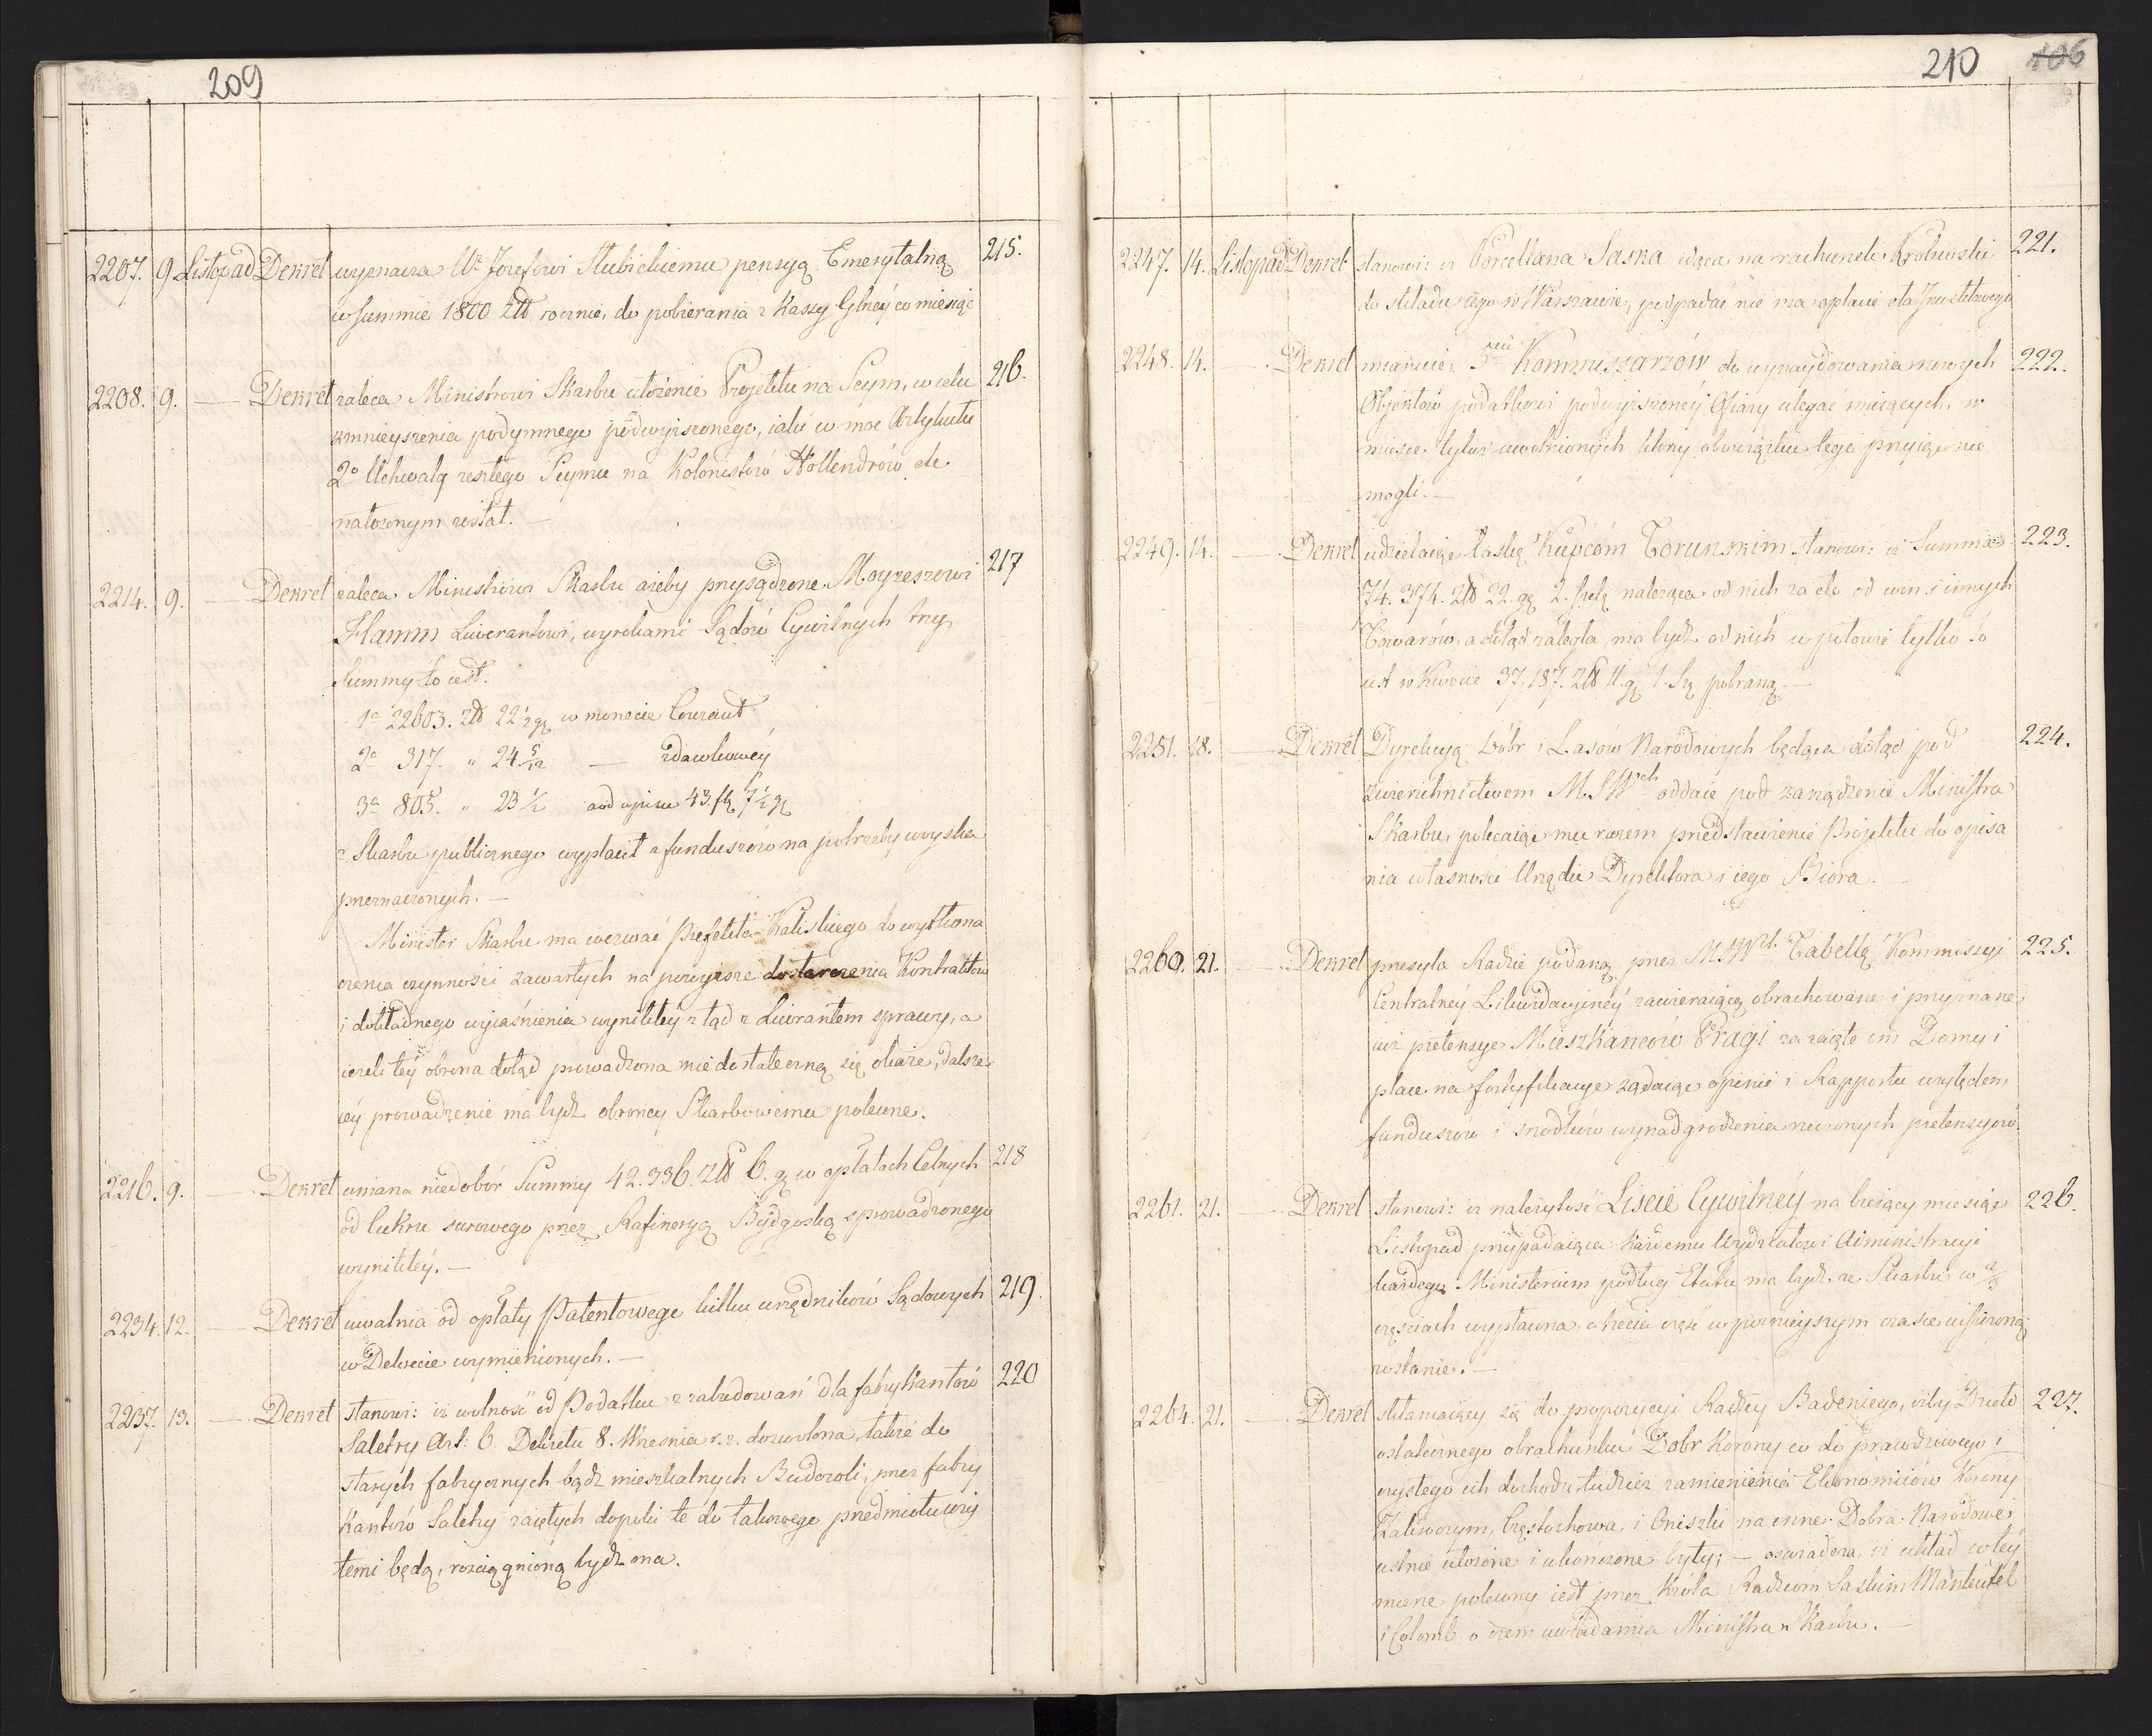 209
2207. 9. Listopad Dekret wyznacza Ur. Jozefowi Słubickiemu pensyą Emerytalną 215.
w summie 1800 złł rocznie, do pobierania z Kassy Głney co miesiąc
2208. 9. — Dekret zaleca Ministrowi Skarbu ułożenie Projektu na Seym, w celu 216.
zmnieyszenia podymnego podwyższonego, iaki w moc Artykułu
2º Uchwałą zeszłego Seymu na Kolonistów Hollendrów etc
nałożonym został. —
2214. 9. — Dekret zaleca Ministrowi Skarbu ażeby przysądzone Moyzeszowi 217
Hamm Liwerantowi, wyrokami Sądów Cywilnych trzy
Summy to iest.
1º 22603. złł 22½ gr w monecie Courant
2º 317. " 24 5/12 — zdawkowéy
3º 805. " 23½ a od wpisu 43. fl. 7½ gr
z Skarbu publicznego wypłacił z funduszów na potrzeby woyska
przeznaczonych. —
Minister Skarbu ma wezwać Prefekta Kaliskiego do wytłoma
czenia czynności zawartych na powyższe dostarczenia Kontraktów
i dokładnego wyiaśnienia wynikłey z tąd z Liwerantem sprawy, a
ieżeli tey obrona dotąd prowadzona niedostateczną się okaże, dalsze
iéy prowadzenie ma bydź obroncy Skarbowemu polecone.
2216. 9. — Dekret umarza niedobór Summy 42.336. złł 6. gr w opłatach Celnych 218
od cukru surowego przez Rafineryą Bydgoską sprowadzonego
wynikłéy. —
2234. 12. — Dekret uwalnia od opłaty Patentowego kilku urzędników Sądowych 219.
w Dekrecie wymienionych. —
2237. 13. — Dekret stanowi: iż wolność od Podatku z zabudowań dla fabrykantów 220
Saletry Art: 6. Dekretu 8. Wrzesnia r. z. dozwolona, także do
starych fabrycznych bądź mieszkalnych Budowli, przez fabry
kantów Saletry zaiętych dopóki te do takowego przedmiotu uży
temi będą, rozciągnioną bydź ma.
210 106
2247. 14. Listopad Dekret stanowi: iż Porcellana Saska idąca na rachunek Królewski 221.
do składu iego w Warszawie, podpadać nie ma opłacie cła Inwektowego
2248. 14. — Dekret mianuie 5ciu Kommissarzów do wynaydowania nowych 222.
Objektów podatkowi podwyższonéy Ofiary ulegać maiących, w
miesce tyluż uwolnionych którzy obowiązku tego przyiąć nie
mogli. —
2249. 14. — Dekret udzielaiąc łaskę Kupcóm Torunskim stanowi: iż Summa 223.
74.374. złł 22 gr 2. szelą należąca od nich za cło od win i innych
Towarów, a dotąd zaległa, ma bydź od nich w połowie tylko to
iest w kwocie 37,187. złł 11. gr 1. Sz. pobraną. —
2251. 18. — Dekret Dyrekcyą Dóbr i Lasów Narodowych będąca dotąd pod 224.
zwierzchnictwem M. SWch oddaie pod zarządzenie Ministra
Skarbu, polecaiąc mu razem przedstawienie Projektu do opisa
nia własności Urzędu Dyrektora i iego Biora. —
2260. 21. — Dekret przesyła Radzie podaną przez M. SWch. Tabellę Kommissyi 225.
Centralnéy Likwidacyinéy zawieraiącą obrachowane i przyznane
iuż pretensye Mieszkanców Pragi za zaięte im Domy i
place na fortyfikacye żądaiąc opinii i Rapportu względem
funduszów i srodków wynadgrodzenia rzeczonych pretensyów
2261. 21. — Dekret stanowi: iż należytość Liscie Cywilnéy na bieżący miesiąc 226.
Listopad przypadaiąca każdemu Wydziałowi Administracyi
każdego Ministerium podług Etatu ma bydź ze Skarbu w ⅔
częsciach wypłacona, a trzecia częsc w poznieyszym czasie uiszczoną
zostanie. —
2264. 21. — Dekret skłaniaiący się do propozycyi Radzcy Badeniego, iżby Dzieło
227.
ostatecznego obrachunku Dobr Korony co do prawdziwego i
czystego ich dochodu tudzież zamienienia Ekonomiiów Korony
Kaliworym, Częstochowa, i Gniszki na inne Dobra Narodowe
ustnie ułożone i ukończone były; — oswiadcza, iż układ w téy
mierze polecony iest przez Króla Radzcóm Saskim Manteufel
i Colomb o czém uwiadamia Ministra Skarbu. —